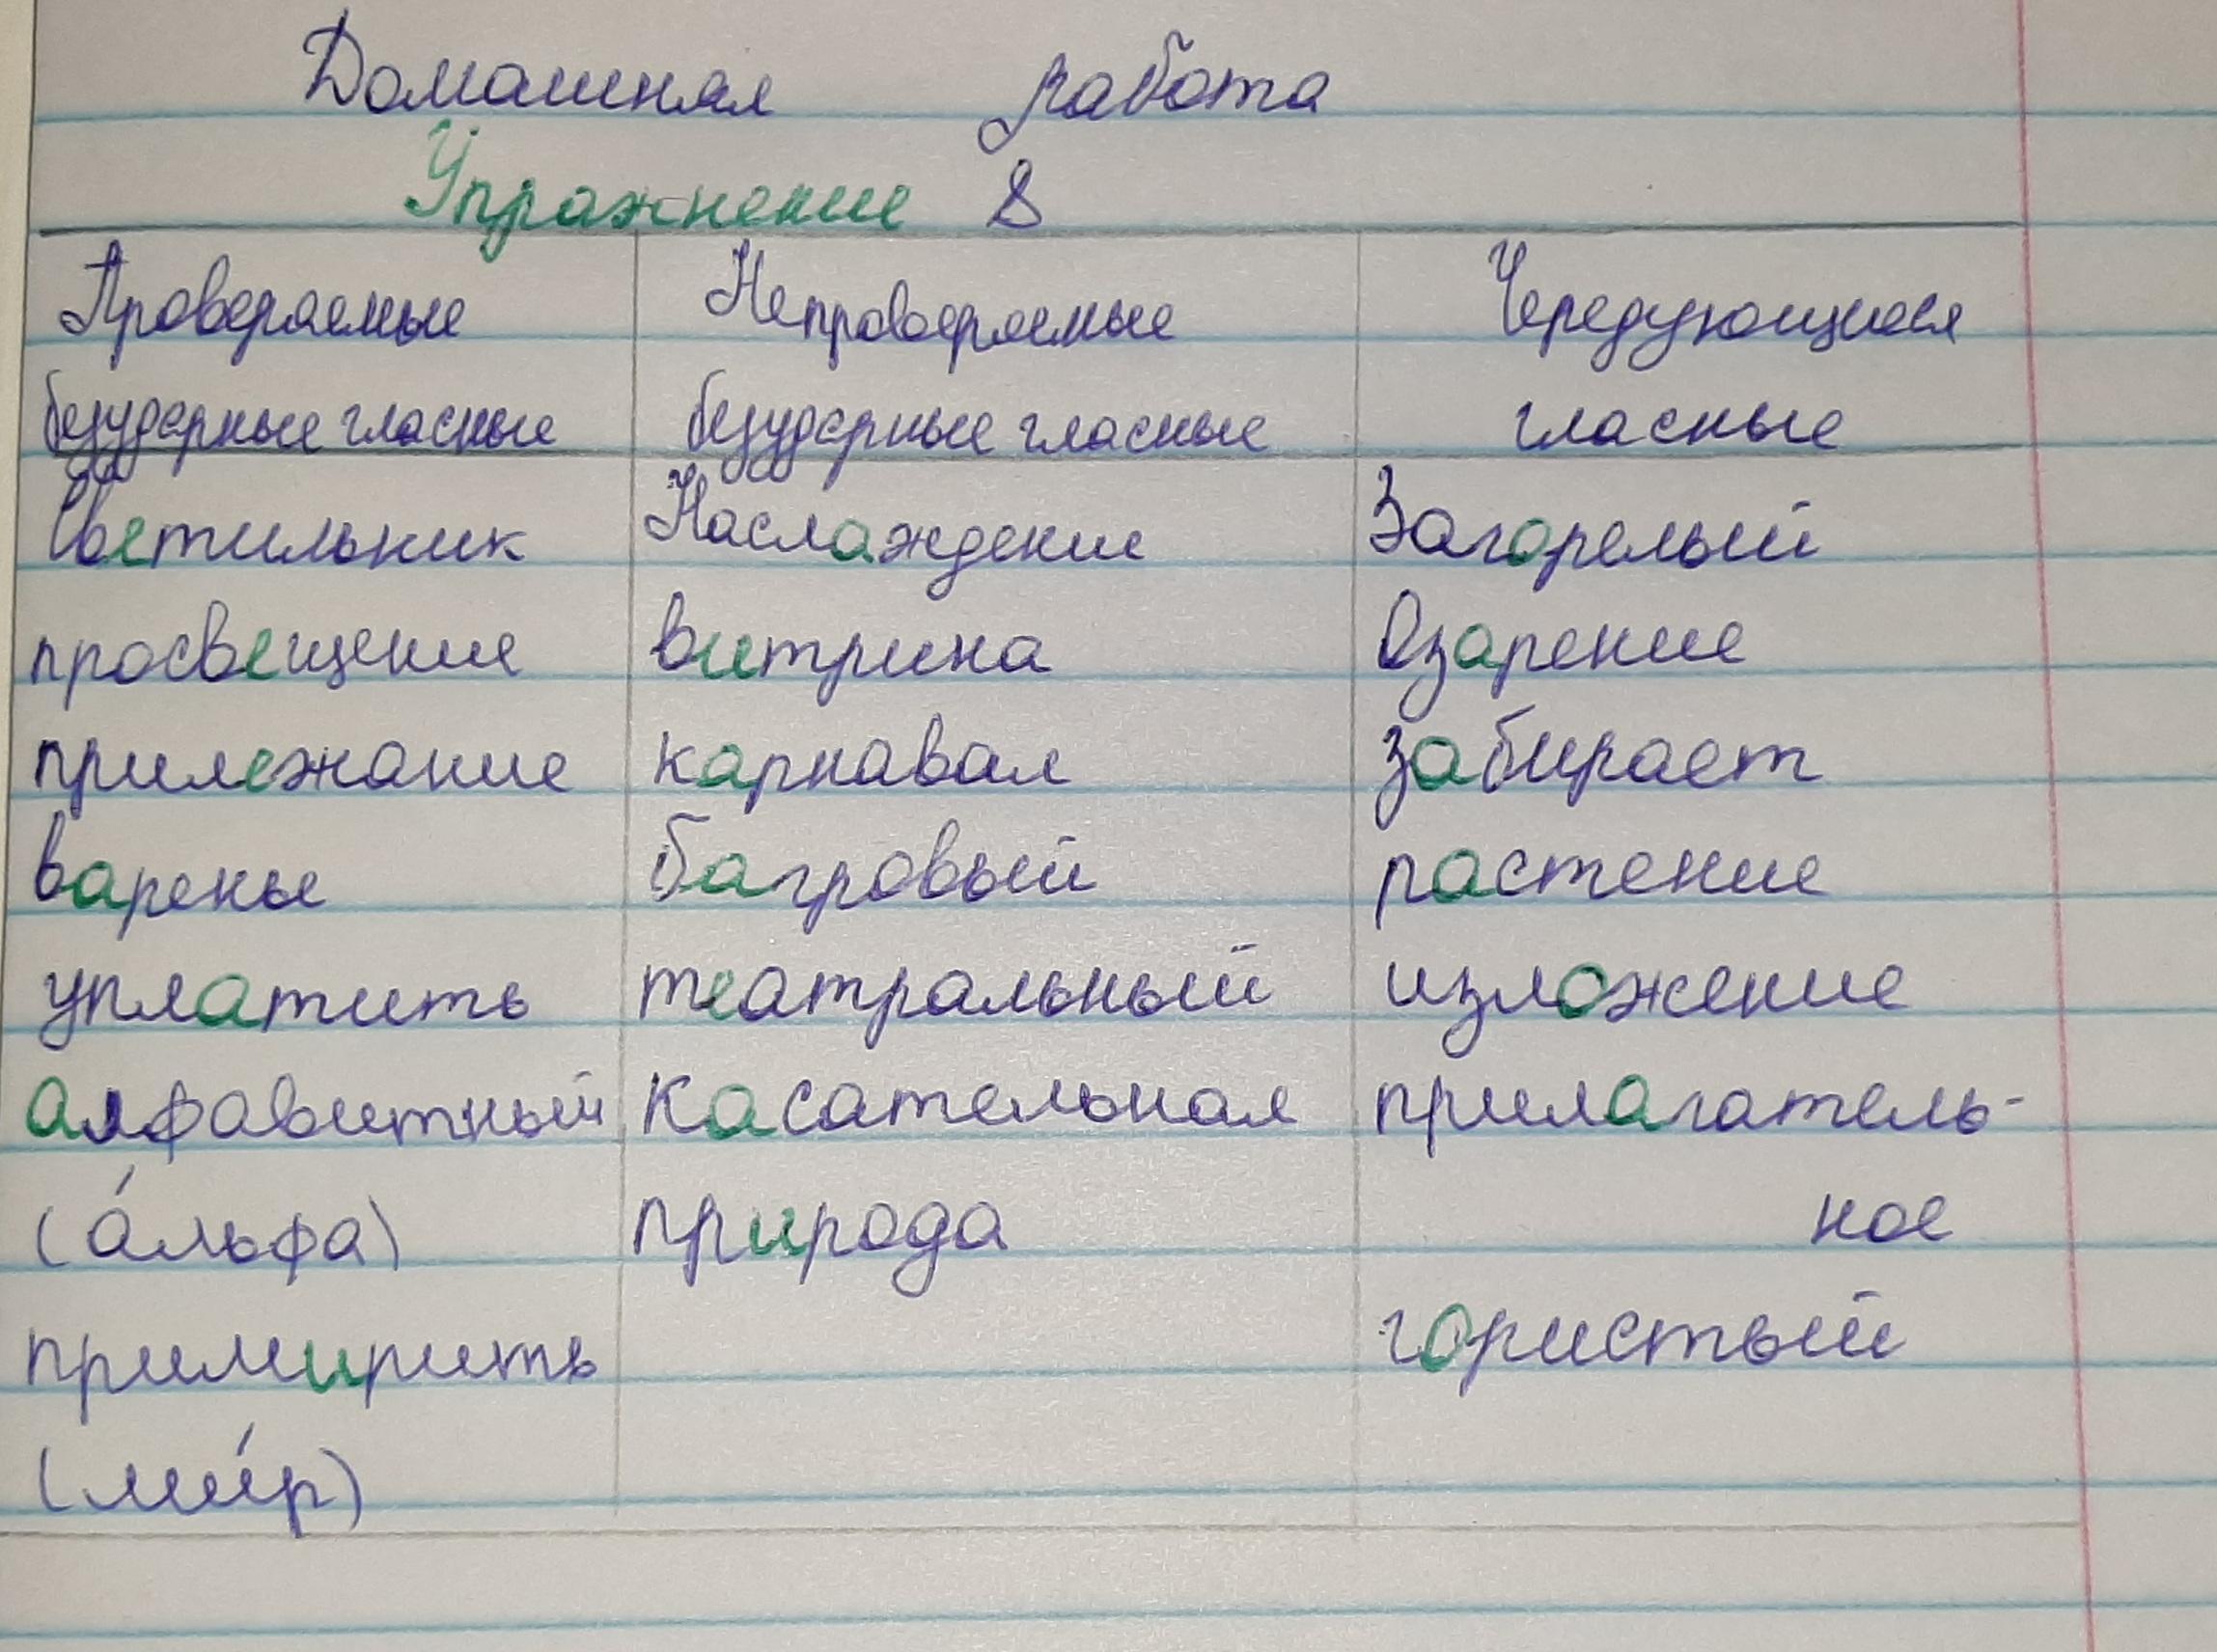 Домашняя работа
Упражнение 8
Проверяемые Непроверяемые Чередующиеся
безударные гласные безударные гласные гласные
Светильник Наслаждение Загорелый
просвещение витрина Озарение
прилежание карнавал забирает
варенье багровый растение
уплатить театральный изложение
алфавитный касательная прилагатель-
(а́льфа) природа ное
примирить гористый
(ми́р)